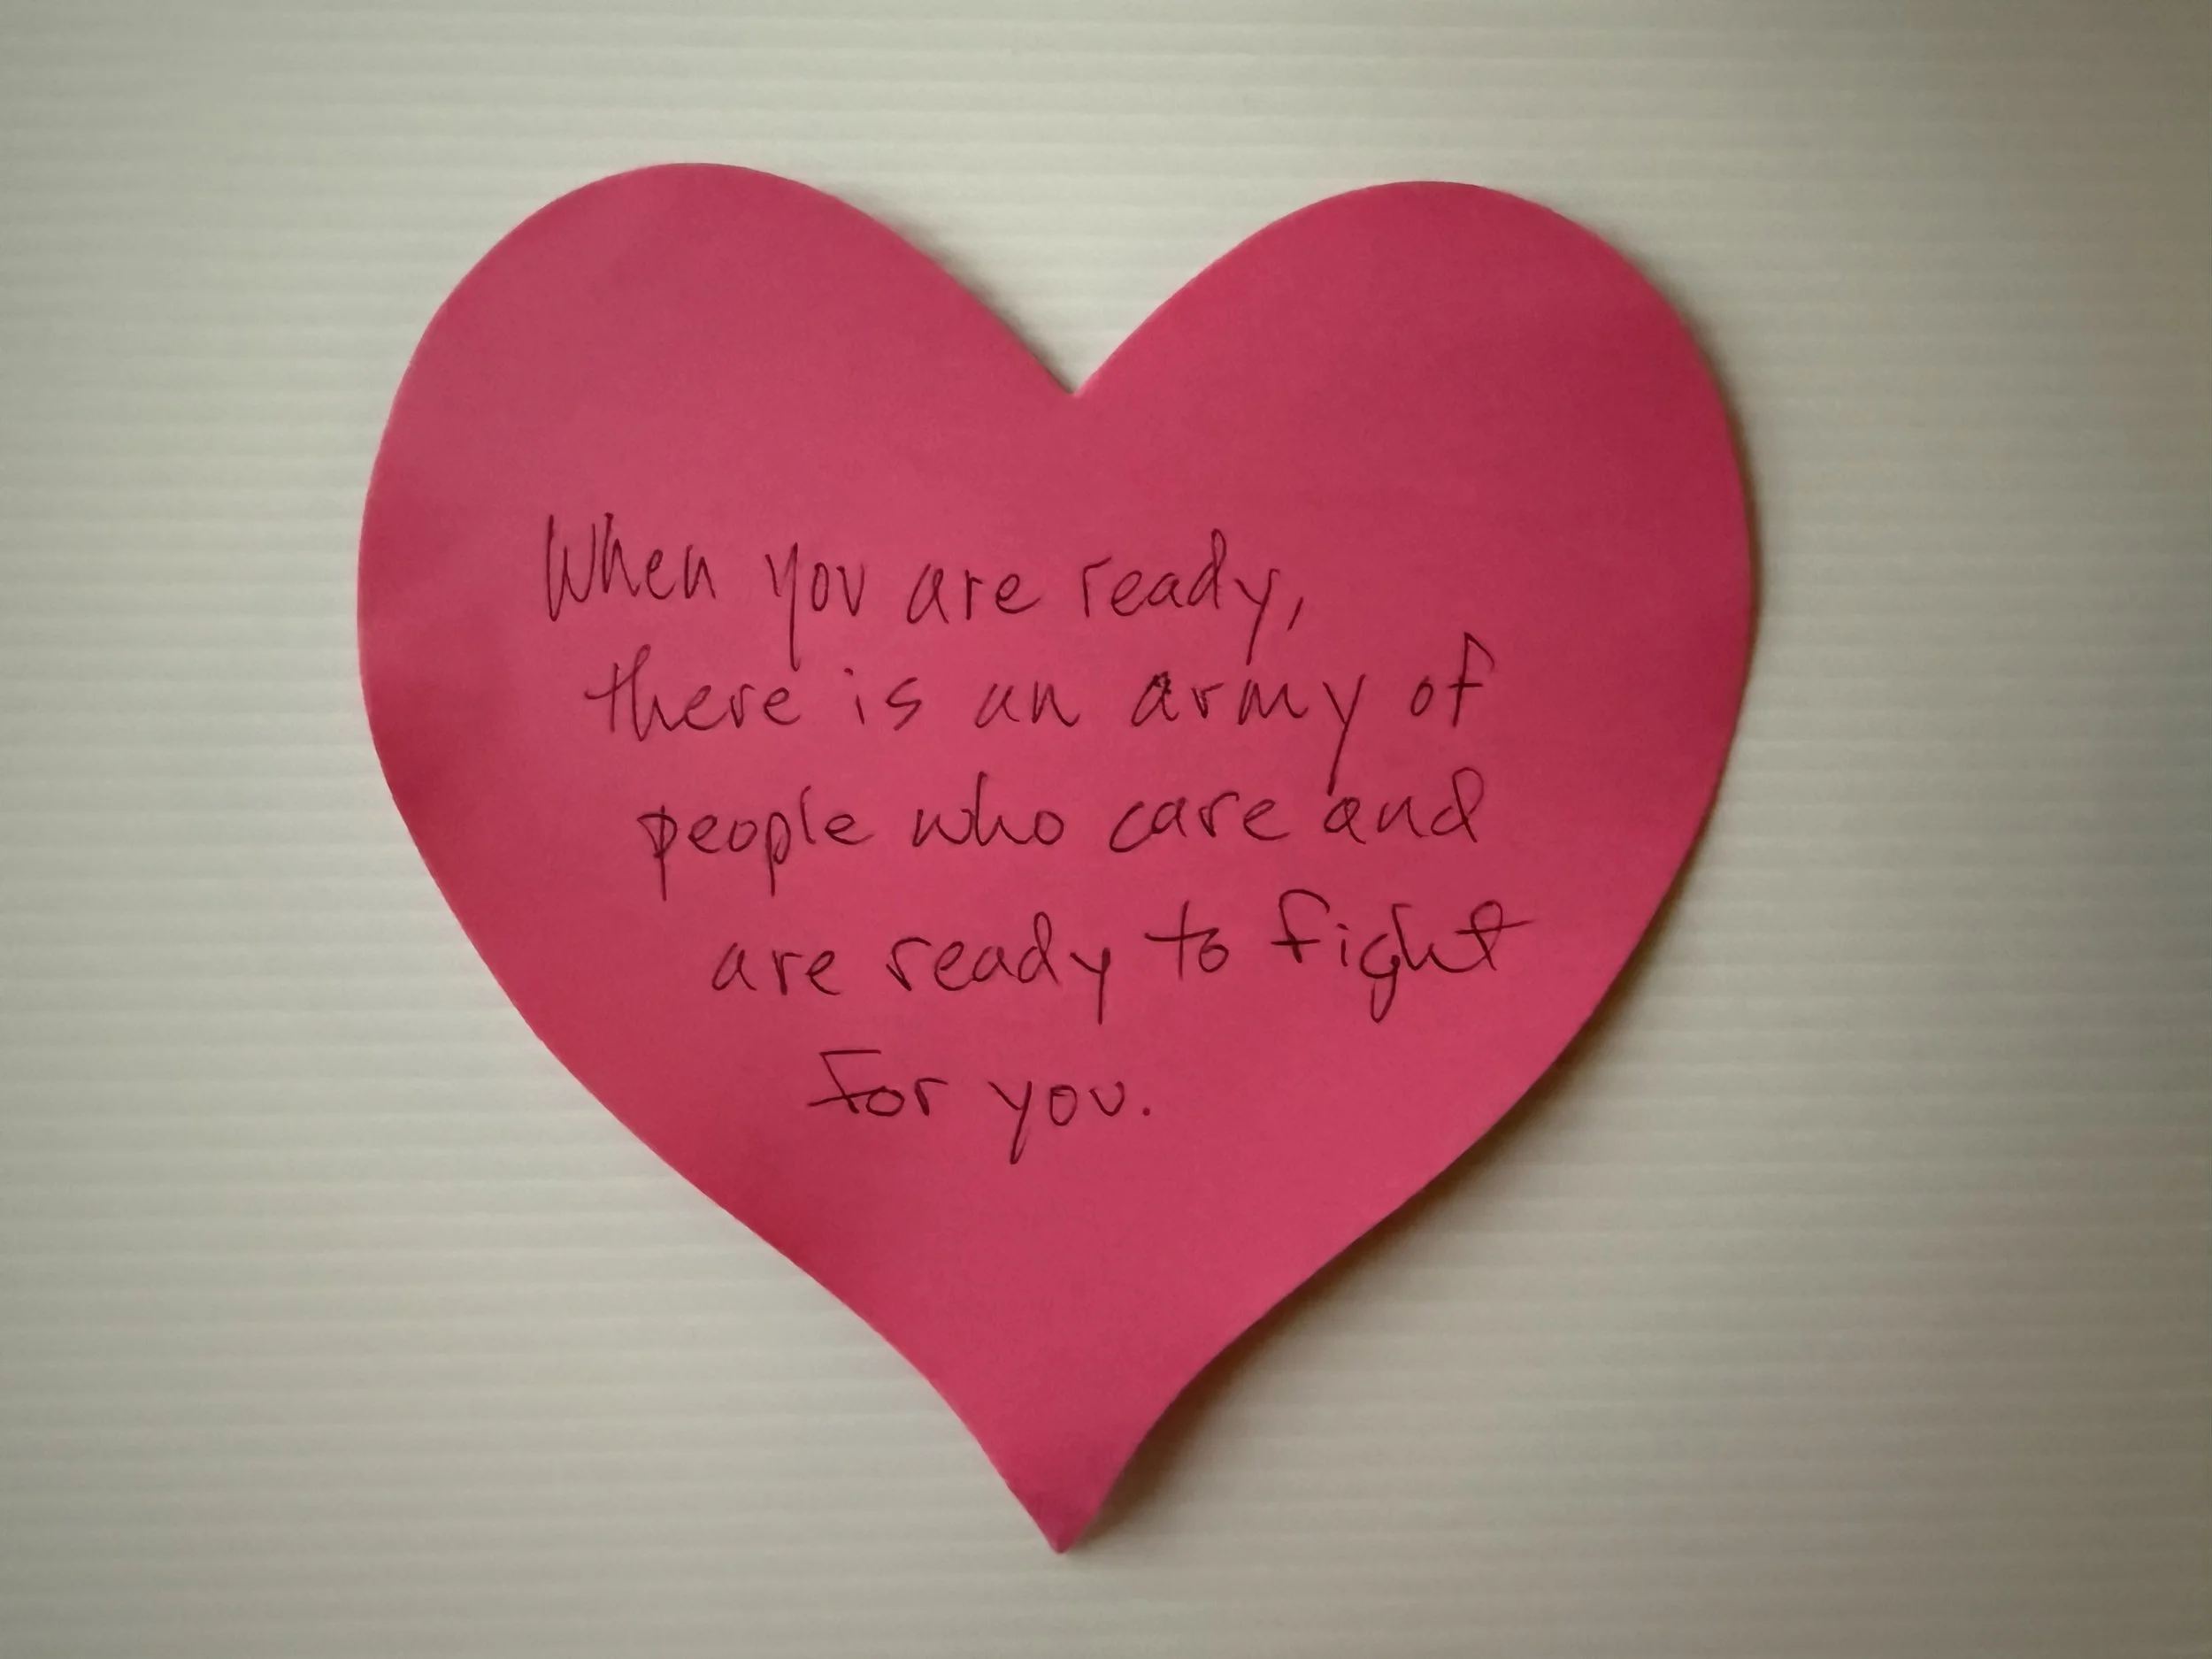 When you are ready,
there is an army of
people who care and
are ready to fight
For you.